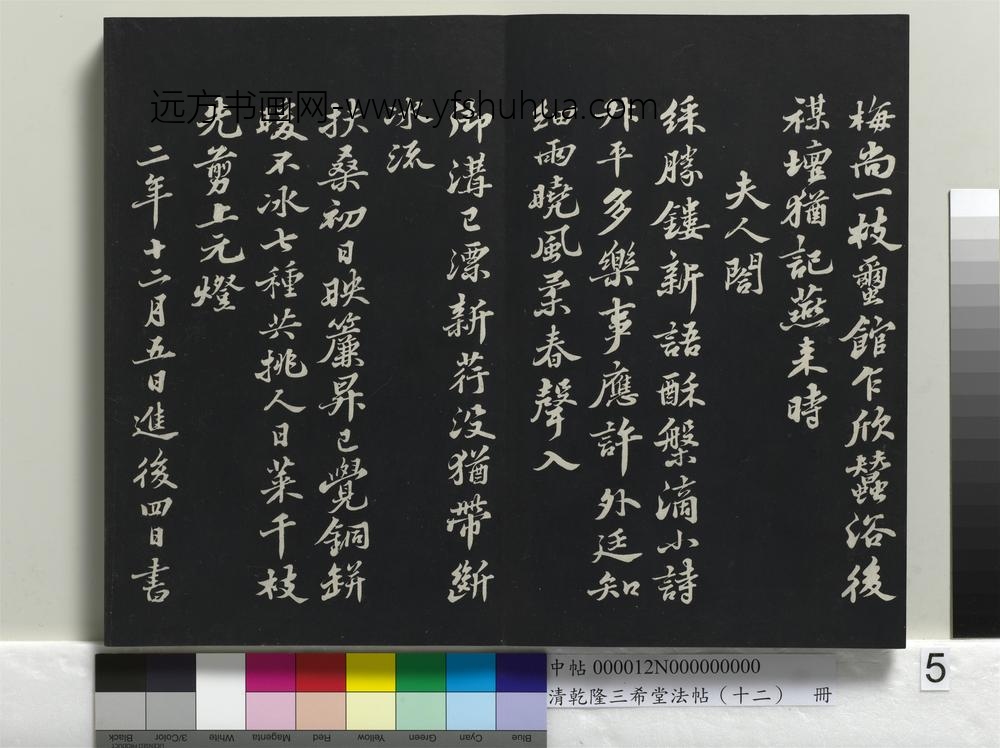 梅尚一枝蠒館乍欣蠶浴後
禖壇猶記燕来時
夫人閤
綵勝鏤新語酥槃滴小詩
升平多樂事應許外廷知
細雨曉風柔春聲入
御溝已漂新荇没猶帶斷
冰流
扶桑初日映簾昇已覺銅缾
暖不冰七種共挑人日菜千枝
先剪上元燈
二年十二月五日進後四日書
远方书画网-www.yfshuhua.com
中帖 000012N000000000
清乾隆三希堂法帖（十二） 冊
5
Blue
Cyan
Green
Yellow
Red
Magenta
White
3/Color
Black